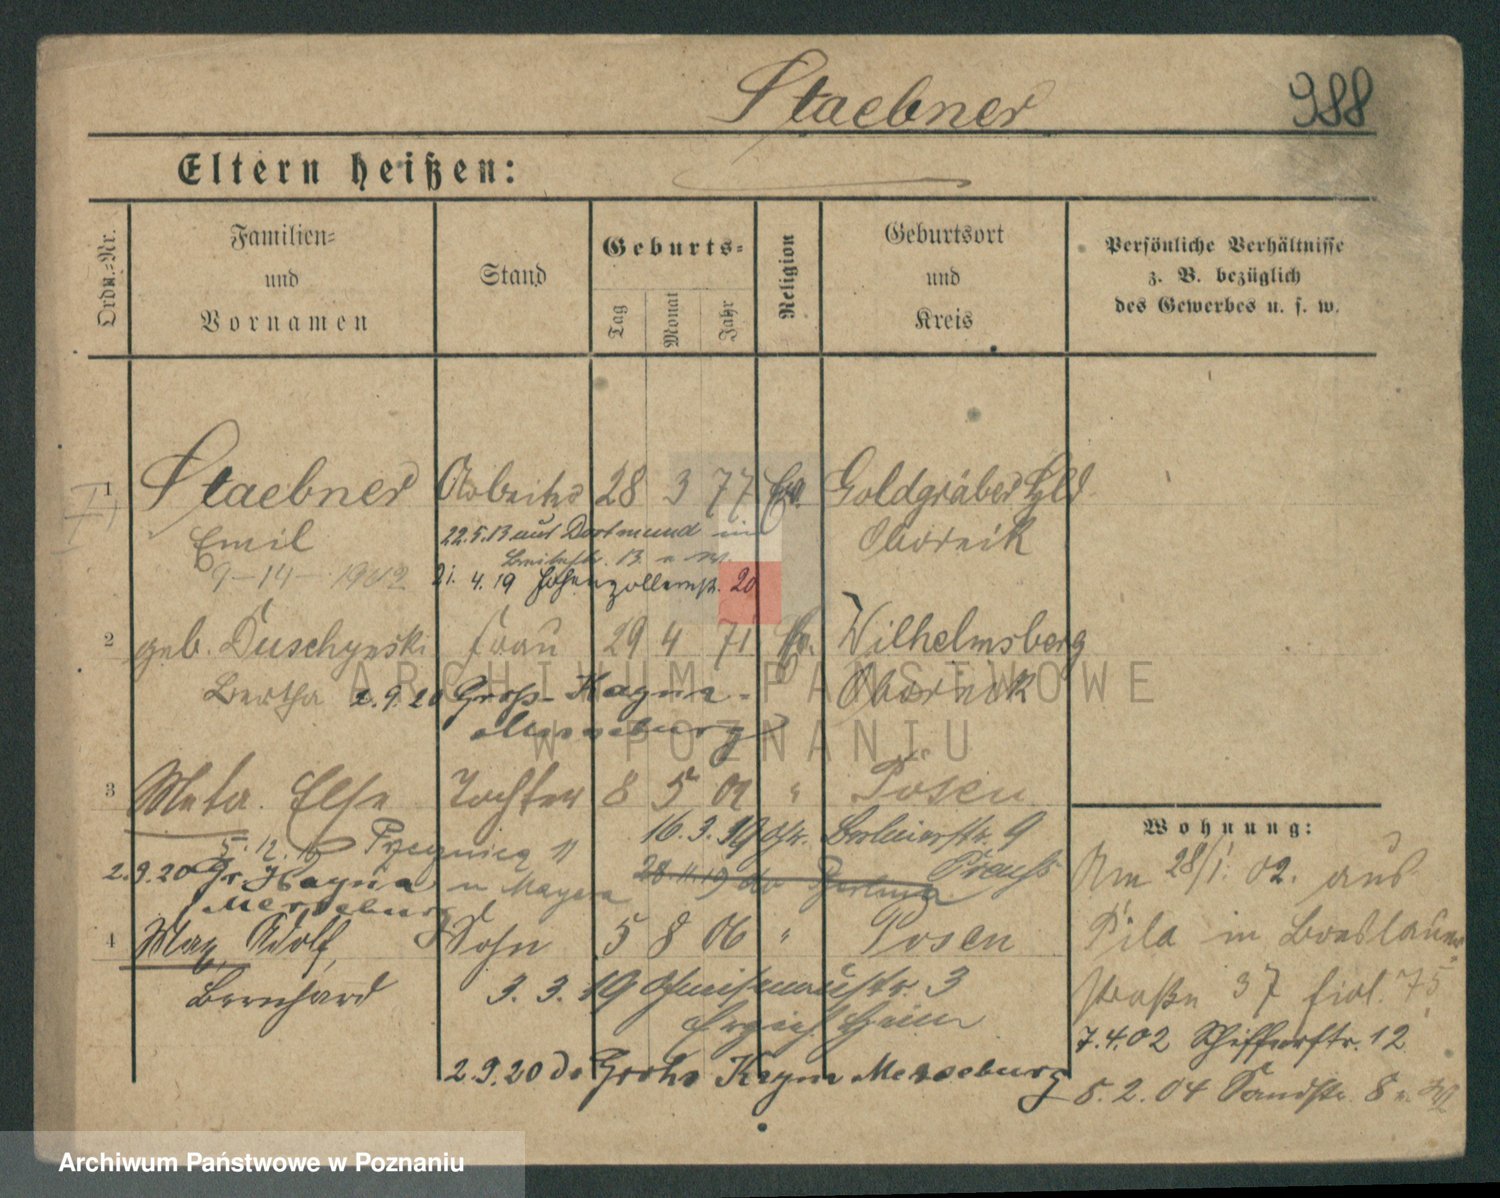 Staebner 988
Eltern heißen:
Ordn.-Nr.
Familien-
und
Vornamen
Stand
Geburts-
Tag
Monat
Jahr
Religion
Geburtsort
und
Kreis
Persönliche Verhältnisse
z. B. bezüglich
des Gewerbes u. s. w.
1 Staebner Arbeiter 28 3 77 Ev. Goldgräber Hld
Emil 22.5.13 aus Dortmund Obornik
9-14-1912 4.19 Hohenzollernstr. 20
2 geb. Duschynski Frau 29 4 71 Ev. Wilhelmsberg
Bertha 2.9.20 Groß-Kayna Obornik
Merseburg
3 Meta Else Tochter 8 5 01 " Posen
16.3.19 Berlinerstr. 9
2.9.20 Gr. Kayna
Merseburg
4 Max, Adolf, Sohn 5 8 06 " Posen
Bernhard 3.3.19 Gneisenaustr. 3
2.9.20 do Grohs Kayna Merseburg
Wohnung:
Am 28/1. 02. aus
Pila in Breslauer
straße 37 75
7.4.02 Schifferstr. 12
5.2.04 Sandstr. 8
ARCHIWUM PAŃSTWOWE
W POZNANIU
Archiwum Państwowe w Poznaniu